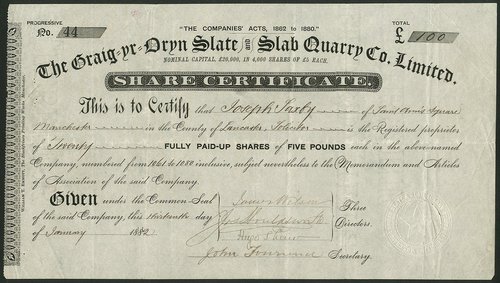 PROGRESSIVE
No. 44
"THE COMPANIES' ACTS, 1862 to 1880."
TOTAL
£ 100
The Graig-yr-Dryn Slate and Slab Quarry Co. Limited.
NOMINAL CAPITAL, £20,000, IN 4,000 SHARES OF £5 EACH.
SHARE CERTIFICATE.
This is to Certify that Joseph Saxby of Saint Ann's Square
Manchester in the County of Lancaster is the Registered proprietor
of Twenty FULLY PAID-UP SHARES of FIVE POUNDS each in the above-named
Company, numbered from 1061 to 1080 inclusive, subject nevertheless to the Memorandum and Articles
of Association of the said Company.
Given under the Common Seal
of the said Company, this thirteenth day
of January 1882
James Watson
Hugo Shaw
Three
Directors.
John Secretary.